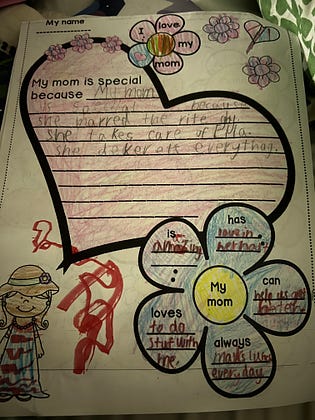 My name
I love my mom
My mom is special
because My mom
is special because
she marred the rite guy.
She takes care of Ella.
She dekerets everything.
is
amazing
has
love in
her heart
can
help us get
better.
always
maks lunch
every day
loves
to do
stuf with
me.
My
mom